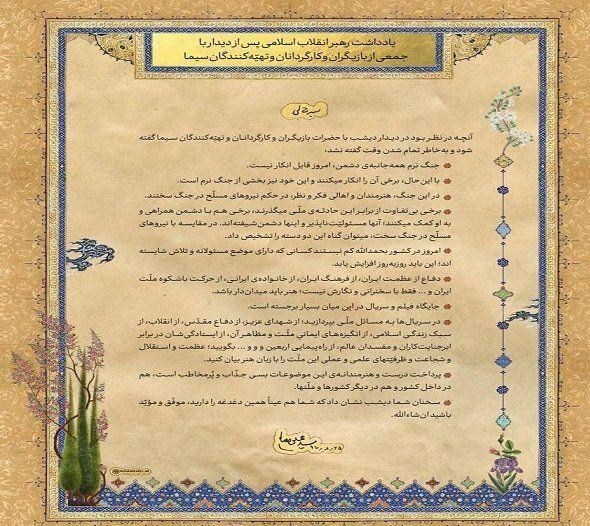 یادداشت رهبر انقلاب اسلامی پس از دیدار با
جمعی از بازیگران و کارگردانان و تهیّه‌کنندگان سیما
آنچه در نظر بود در دیدار دیشب با حضرات بازیگران و کارگردانان و تهیّه‌کنندگان سیما گفته
شود و به‌خاطر تمام شدن وقت گفته نشد:
جنگ نرم همه‌جانبه‌ی دشمن، امروز قابل انکار نیست.
با این‌حال، برخی آن را انکار میکنند و این خود نیز بخشی از جنگ نرم است.
در این جنگ، هنرمندان و اهالی فکر و نظر، در حکم نیروهای مسلّح در جنگ سختند.
برخی بی‌تفاوت از برابر این حادثه‌ی ملّی میگذرند، برخی هم با دشمن همراهی و
به او کمک میکنند؛ آنها مسئولیّت‌ناپذیر و اینها دشمن‌شیفته‌اند. در مقایسه با نیروهای
مسلّح در جنگ سخت، میتوان گناه این دو دسته را تشخیص داد.
امروز در کشور بحمدالله کم نیستند کسانی که دارای موضع مسئولانه و تلاش شایسته
اند؛ این باید روزبه‌روز افزایش یابد.
دفاع از عظمت ایران، از فرهنگ ایران، از خانواده‌ی ایرانی، از حرکت باشکوه ملّت
ایران و ... فقط با سخنرانی و نگارش نیست؛ هنر باید میدان‌دار باشد.
جایگاه فیلم و سریال در این میان بسیار برجسته است.
در سریال‌ها به مسائل ملّی بپردازید؛ از شهدای عزیز، از دفاع مقدّس، از انقلاب، از
سبک زندگی اسلامی، از انگیزه‌های ایمانی ملّت و مظاهر آن، از ایستادگی‌شان در برابر
ابرجنایت‌کاران و مفسدان عالم، از راه‌پیمایی اربعین و و و ... بگویید؛ عظمت و استقلال
و شجاعت و ظرفیّتهای علمی و عملی این ملّت را با زبان هنر بیان کنید.
پرداخت درست و هنرمندانه‌ی این موضوعات بسی جذّاب و پُرمخاطب است، هم
در داخل کشور و هم در دیگر کشورها و ملّتها.
سخنان شما دیشب نشان داد که شما هم عیناً همین دغدغه را دارید، موفّق و مؤیّد
باشید ان‌شاءالله.